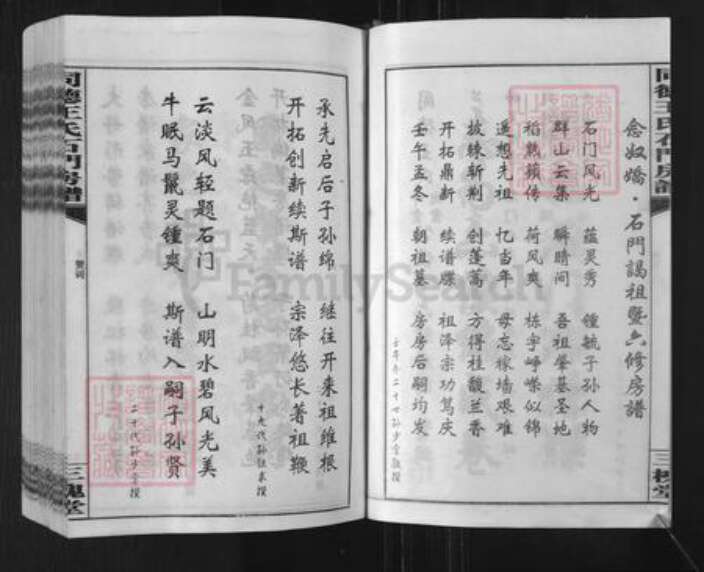 念奴嬌·石門謁祖暨六修房譜
石门风光 蕴灵秀 锺毓子孙人物
群山云集 瞬睛间 吾祖肇基圣地
稻熟蘋传 荷风爽 栋宇峥嵘似锦
遥想先祖 忆当年 毋忘稼墙艰难
披棘斩荆 创蓬蒿 方得桂馥兰香
开拓鼎新 续谱牒 祖泽宗功笃庆
壬午孟冬 朝祖墓 房房后嗣均发
承先启后子孙绵 继往开来祖维根
开拓创新续斯谱 宗泽悠长著祖鞭
十九代孙
撰
云淡风轻题石门 山明水碧风光美
牛眠马鬣灵锺爽 斯谱入嗣子孙贤
二十代孙少云撰
同德王氏石門房譜
贊詞
三槐堂
同德王氏石門房譜
三槐堂
FamilySearch